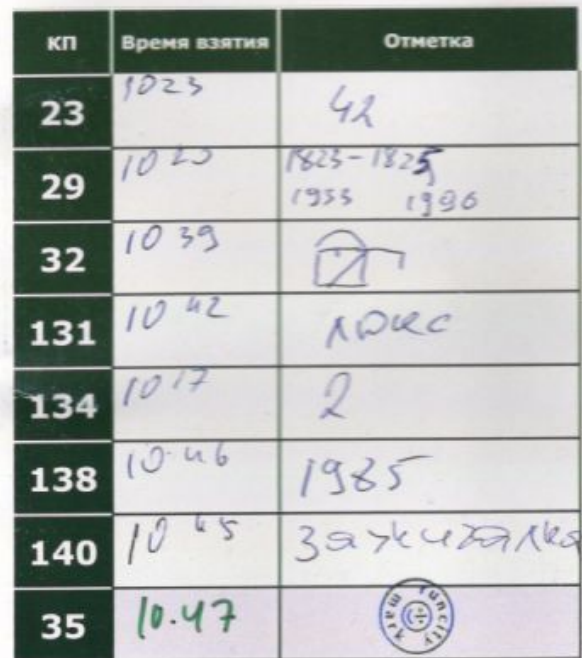 КП Время взятия Отметка
23 10 23 42
29 10 20 1823-1825
1933 1996
32 10 39
131 10 42 люкс
134 10 17 2
138 10 46 1985
140 10 45 зажигалка
35 10.47 funcity